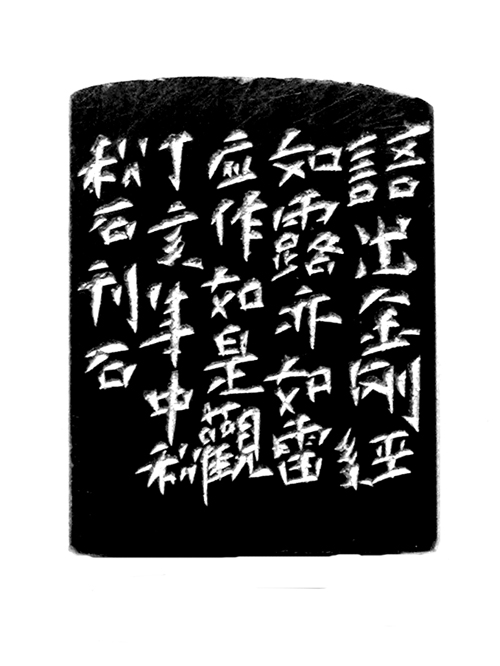 語出金剛經
如露亦如電
应作如是觀
丁亥年中秋
秋石刊石